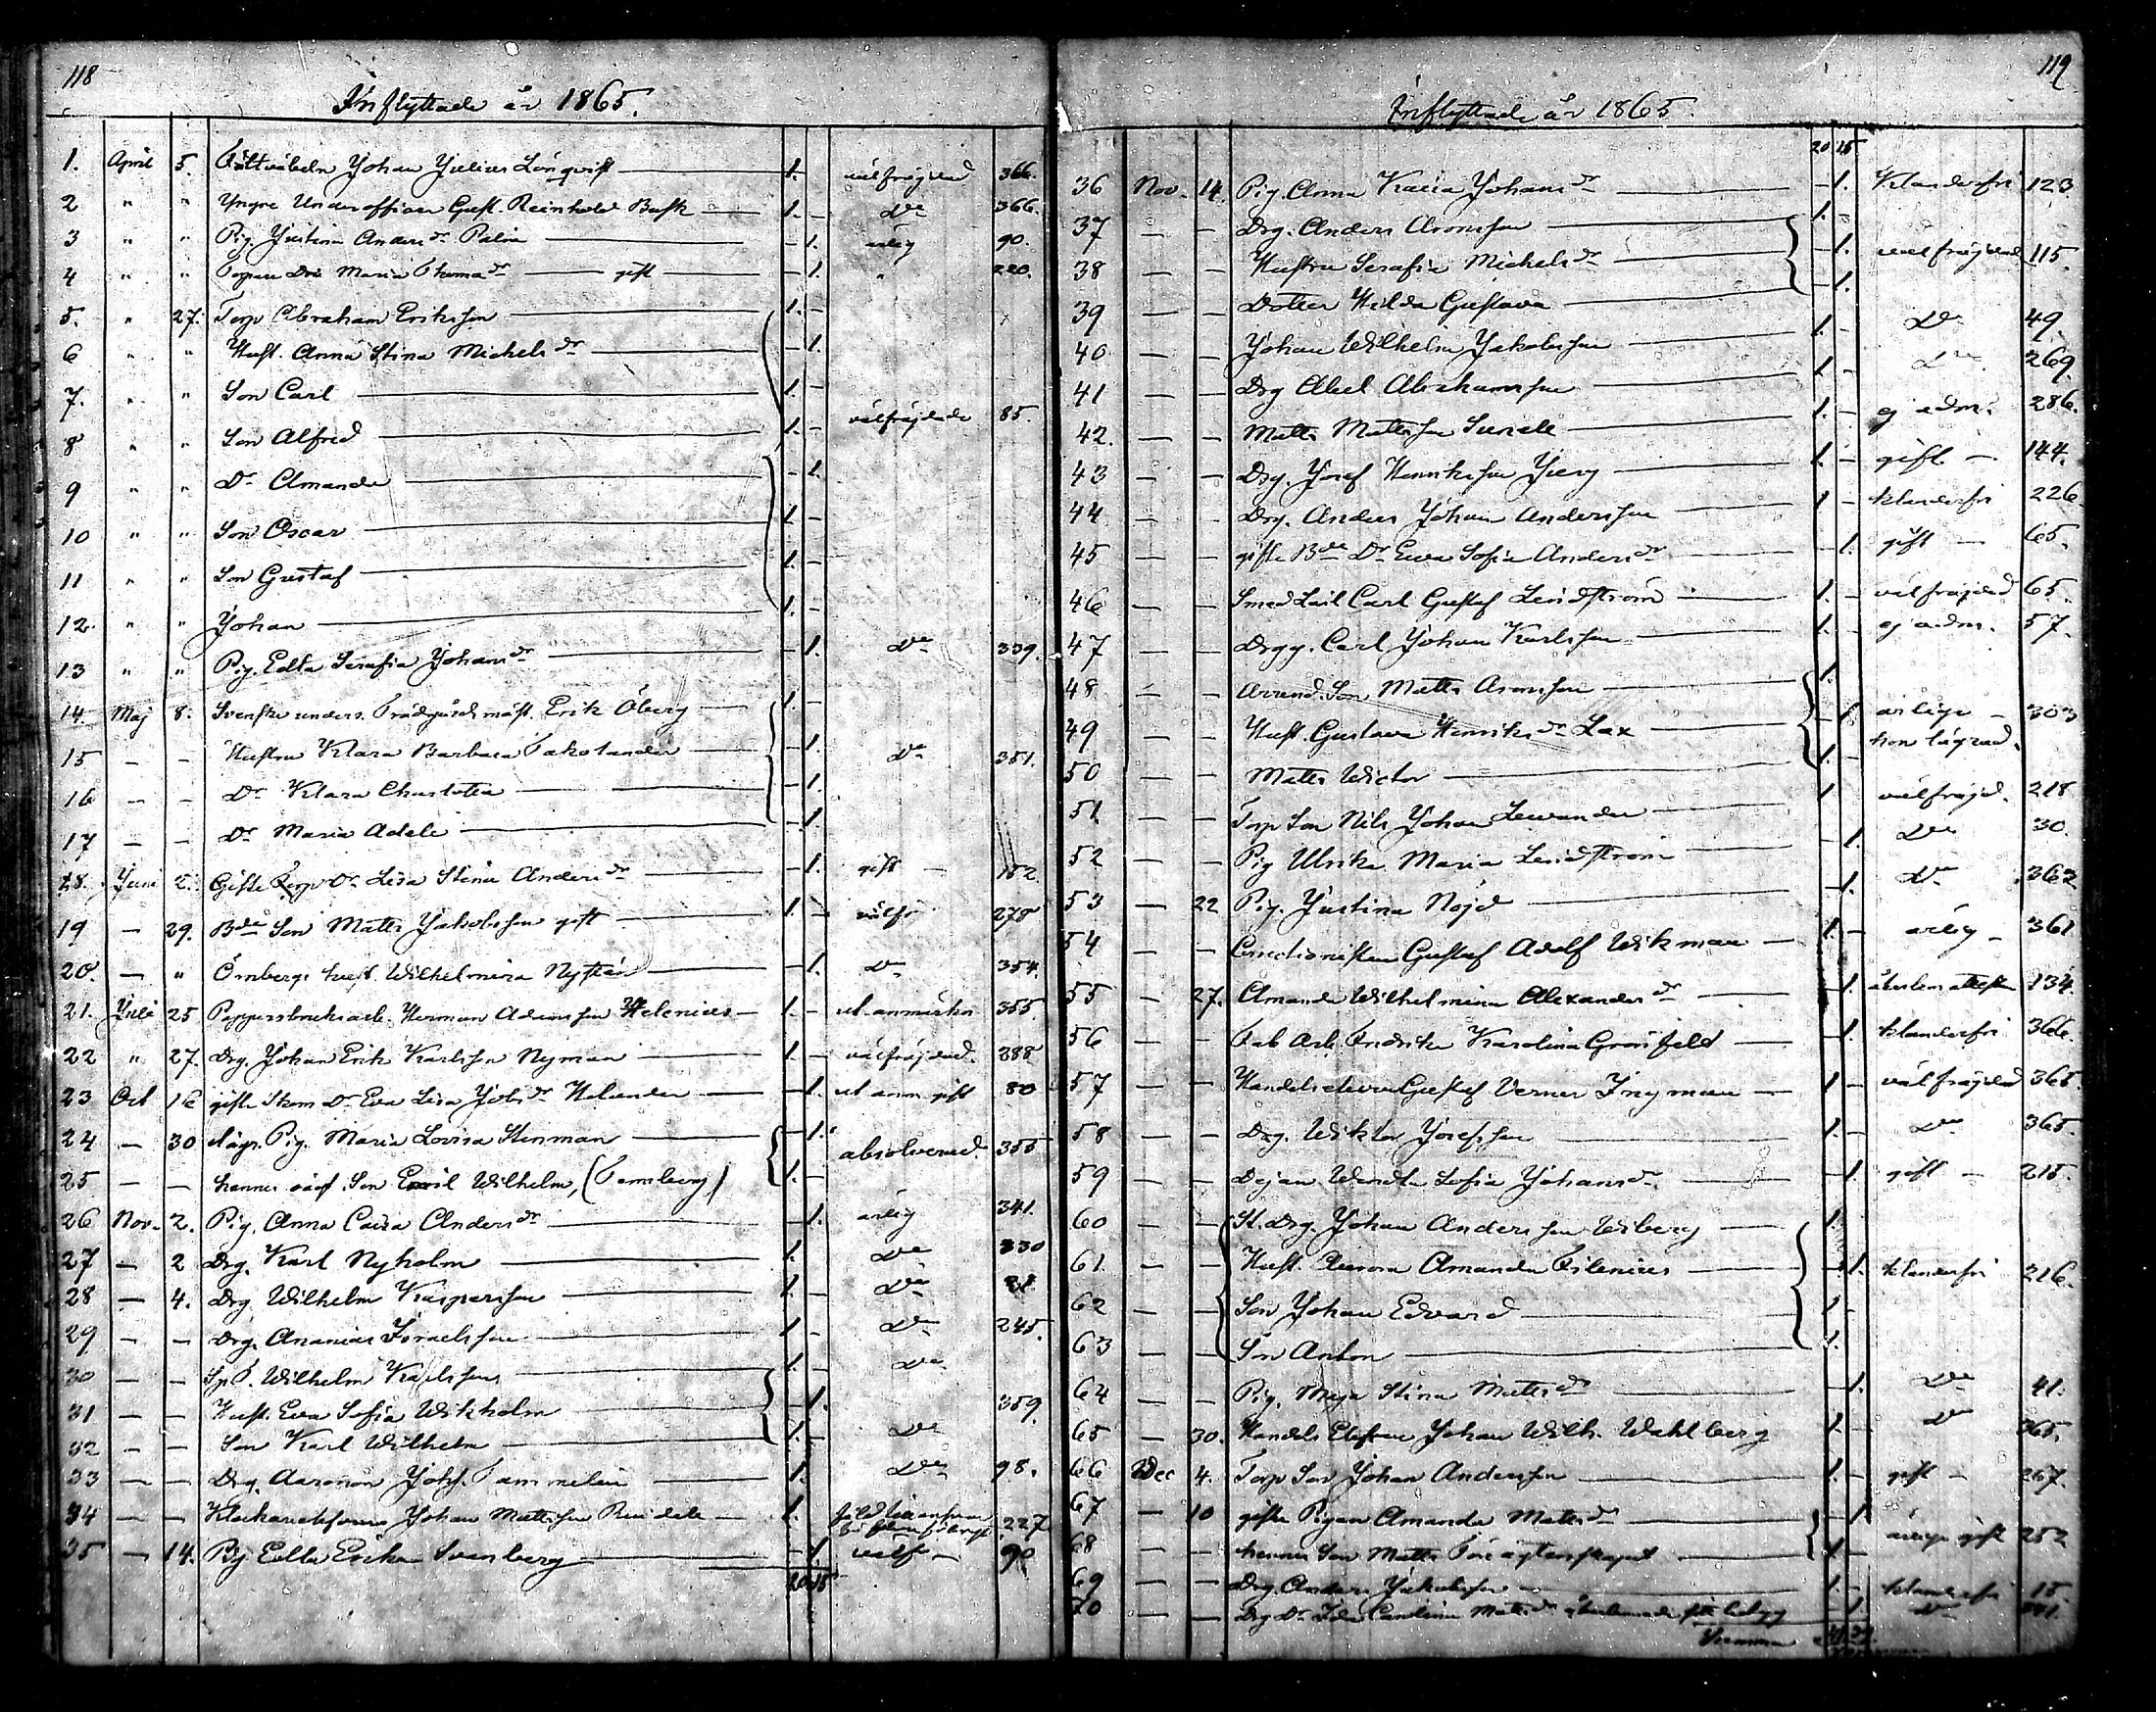 118
Inflyttade år 1865.
1. April 5. Fältväbeln Johan Julius Lönqvist 1. välfrejdad 366.
2 " " Yngre Underofficer Gust. Reinhold Busk 1. – Do 366.
3 " " Pig. Justina Anders dr Palin – 1. ärlig 90.
4 " " Maria Thoma dr gift – 1. " 220.
5. " 27. Torp Abraham Eriksson 1. –
6 " " Hust. Anna Stina Michels dr – 1.
7. " " Son Carl 1. –
8 " " Son Alfred 1. – välfrejdade 85.
9 " " Dr Amanda – 1.
10 " " Son Oscar 1. –
11 " " Son Gustaf 1. –
12. " " Johan 1. –
13 " " Pig. Edla Serafia Johans dr – 1. Do 339.
14. Maj 8. Svenske unders. Trädgårdmäst. Erik Öberg 1. –
15 – – Hustru Klara Barbara – 1. Do 351.
16 – – Dr Klara Charlotta – 1.
17 – – Dr Maria Adele – 1.
18. Juni 2. Gifte Torp Dr Lisa Stina Anders dr – 1. gift – 152.
19 – 29. Bde Son Matts Jakobsson gift 1. – välfr 278
20. – " Örnbergs hust. Wilhelmina Nystén – 1. Do 354.
21. Juli 25 Pappersbruksarb. Herman Adamsson Helenius 1. – ut. anmärkn 355.
22 " 27. Drg. Johan Erik Karlsson Nyman 1. – välfrejdad. 288
23 Oct 16 gifte Dr Eva Lisa Jobs dr Helander – 1. ut anm. gift 80
24 – 30 lägr. Pig. Maria Lovisa Stenman – 1. absolverad 355
25 – – hennes oäkt. Son Emil Wilhelm, (Famlberg) 1. –
26 Nov. 2. Pig. Anna Caisa Anders dr – 1. ärlig 341.
27 – 2 Drg. Karl Nyholm 1. Do 330
28 – 4. Drg. Wilhelm Kaspersson 1. – Do 21.
29 – – Drg. Ananias Israelsson 1. – Do 245.
30 – – Wilhelm Karlsson 1. – Do
31 – – Hust. Eva Sofia Wikholm – 1. 359.
32 – – Son Karl Wilhelm 1. – Do
33 – – Drg. Aaronson Joh. Tammelin 1. Do 98.
34 – – Klockaresonen Johan Mattsson 1. 227
35 – 14. Pig Edla Erika Svanberg – 1. välfr – 90.
20 15
119
Inflyttade år 1865.
20 15
36 Nov. 14. Pig. Anna Kaisa Johans dr – 1. Klanderfri 123
37 – – Drg. Anders Aronsson 1.
38 – – Hustru Serafia Michels dr – 1. välfrejdad 115.
39 – – Dotter Hilda Gustava – 1.
40 – – Johan Wilhelm Jakobsson 1. – Do 49.
41 – – Drg Abel Abrahamsson 1. – Do 269.
42. – – Matts Mattsson 1. – ej adm. 286.
43 – – Drg. Josef Henriksson 1. – gift – 144.
44 – – Drg. Anders Johan Andersson 1 – klanderfri 226
45 – – gifte Bde Dr Eva Sofia Anders dr – 1. gift – 65.
46 – – Smed Carl Gustaf Lindström 1. – välfrejdad 65.
47 – – Drgg. Carl Johan Karlsson 1. – ej adm. 57.
48 – – Arrend. Son Matts Aronsson 1.
49 – – Hust. Gustava Henriks dr Lax – 1 ärliga – 303
hon lägrad.
50 – – Matts Wictor 1. –
51 – – Torp Son Nils Johan Lewander 1 välfrejd. 218
52 – – Pig Ulrika Maria Lindström – 1 Do 30.
53 – 22 Pig. Justina Nöjd – 1. Do 362
54 – – Gustaf Adolf Wikman 1. – ärlig – 361
55 – 27. Amanda Wilhelmina Alexanders dr – 1. 134.
56 – – Fab Arb. Fredrika Karolina Grönfeld – 1. klanderfri 366.
57 – – Gustaf Verner Ingman 1 – välfrejdad 365.
58 – – Drg. Wiktor Josefsson 1. – Do 365.
59 – – Dejan Wendla Sofia Johans dr – 1. gift – 215.
60 – – St. Drg. Johan Andersson Wiberg 1.
61 – – Hust. Aurora Amanda Filenius – 1. klanderfri 216.
62 – – Son Johan Edvard 1 –
63 – – Son Anton 1. –
64 – – Pig. Maja Stina Matts dr – 1. Do 41.
65 – 30. Handels Johan Wilh. Wahlberg 1. – Do 365.
66 Dec 4. Torp Son Johan Andersson 1. – gift – 267.
67 – 10 gifte Pigan Amanda Matts dr – 1
68 – – hennes Son Matts före äktenskapet 1. – ärliga gift 252
69 – – Drg. Anders Jakobsson 1. – klanderfri 15.
70 – – Drg Dr Ida Carolina Matts dr – 1 Do
Summa